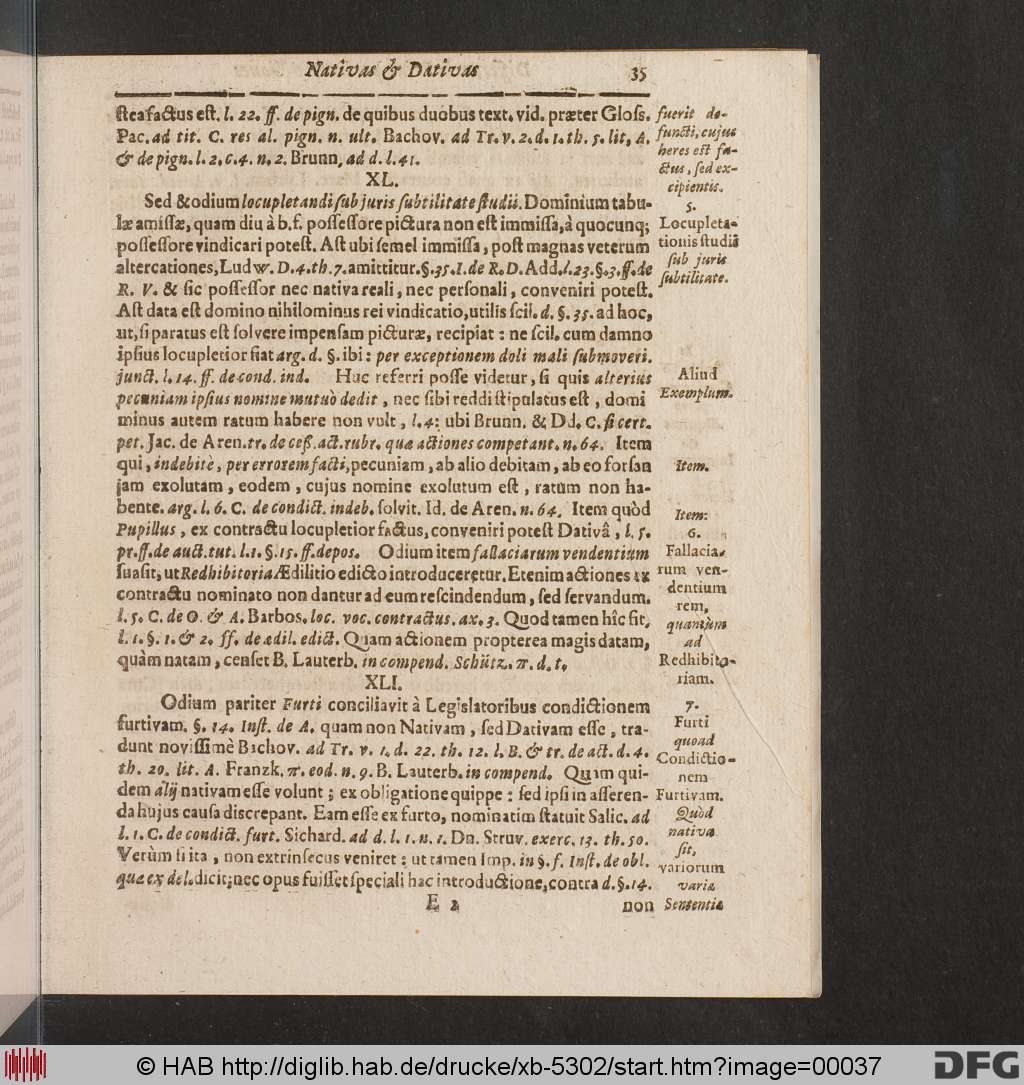 Nativas & Dativas 35
steafactus est. l. 22. ff. de pign. de quibus duobus text. vid. præter Gloss.
Pac. ad tit. C. res al. pign. n. ult. Bachov. ad Tr. v. 2. d. 1. th. 5. lit. A.
& de pign. l. 2. c. 4. n. 2. Brunn, ad d. l. 41.
XL.
Sed & odium locupletandi sub juris subtilitate studii. Dominium tabu-
læ amissæ, quam diu à b. f. possessore pictura non est immissa, à quocunq;
possessore vindicari potest. Ast ubi semel immissa, post magnas veterum
altercationes, Ludw. D. 4. th. 7. amittitur. §. 35. I. de R. D. Add. l. 23. §. 3. ff. de
R. V. & sic possessor nec nativa reali, nec personali, conveniri potest.
Ast data est domino nihilominus rei vindicatio, utilis scil. d. §. 35. ad hoc,
ut, si paratus est solvere impensam picturæ, recipiat: ne scil. cum damno
ipsius locupletior fiat arg. d. §. ibi: per exceptionem doli mali submoveri.
junct. l. 14. ff. de cond. ind. Huc referri posse videtur, si quis alterius
pecuniam ipsius nomine mutuò dedit, nec sibi reddi stipulatus est, domi
minus autem ratum habere non vult, l. 4: ubi Brunn. & Dd. C. si cert.
pet. Jac. de Aren. tr. de ceß. act. rubr. quæ actiones competant. n. 64. Item
qui, indebitè, per errorem facti, pecuniam, ab alio debitam, ab eo forsan
jam exolutam, eodem, cujus nomine exolutum est, ratum non ha-
bente. arg. l. 6. C. de condict. indeb. solvit. Id. de Aren. n. 64. Item quòd
Pupillus, ex contractu locupletior factus, conveniri potest Dativâ, l. 5.
pr. ff. de auct. tut. l. 1. §. 15. ff. depos. Odium item fallaciarum vendentium
suasit, ut Redhibitoria Ædilitio edicto introduceretur. Etenim actiones ex
contractu nominato non dantur ad eum rescindendum, sed servandum.
l. 5. C. de O. & A. Barbos. loc. voc. contractus. ax. 3. Quod tamen hîc fit,
l. 1. §. 1. & 2. ff. de ædil. edict. Quam actionem propterea magis datam,
quàm natam, censet B. Lauterb. in compend. Schütz. π. d. t.
XLI.
Odium pariter Furti conciliavit à Legislatoribus condictionem
furtivam. §. 14. Inst. de A. quam non Nativam, sed Dativam esse, tra-
dunt novissimè Bachov. ad Tr. v. 1. d. 22. th. 12. l. B. & tr. de act. d. 4.
th. 20. lit. A. Franzk. π. eod. n. 9. B. Lauterb. in compend. Quam qui-
dem alij nativam esse volunt; ex obligatione quippe: sed ipsi in asseren-
da hujus causa discrepant. Eam esse ex furto, nominatim statuit Salic. ad
l. 1. C. de condict. furt. Sichard. ad d. l. 1. n. 1. Dn. Struv. exerc. 13. th. 50.
Verùm si ita, non extrinsecus veniret: ut tamen Imp. in §. f. Inst. de obl.
quæ ex del. dicit; nec opus fuisset speciali hac introductione, contra d. §. 14.
E 2 non
fuerit de-
functi, cujus
heres est fa-
ctus, sed ex-
cipientis.
5.
Locupleta-
tionis studii
sub juris
subtilitate.
Aliud
Exemplum.
Item.
Item:
6.
Fallacia-
rum ven-
dentium
rem,
quantum
ad
Redhibito-
riam.
7.
Furti
quoad
Condictio-
nem
Furtivam.
Quòd
nativa
sit,
variorum
variæ
Sententiæ
© HAB http://diglib.hab.de/drucke/xb-5302/start.htm?image=00037
DFG